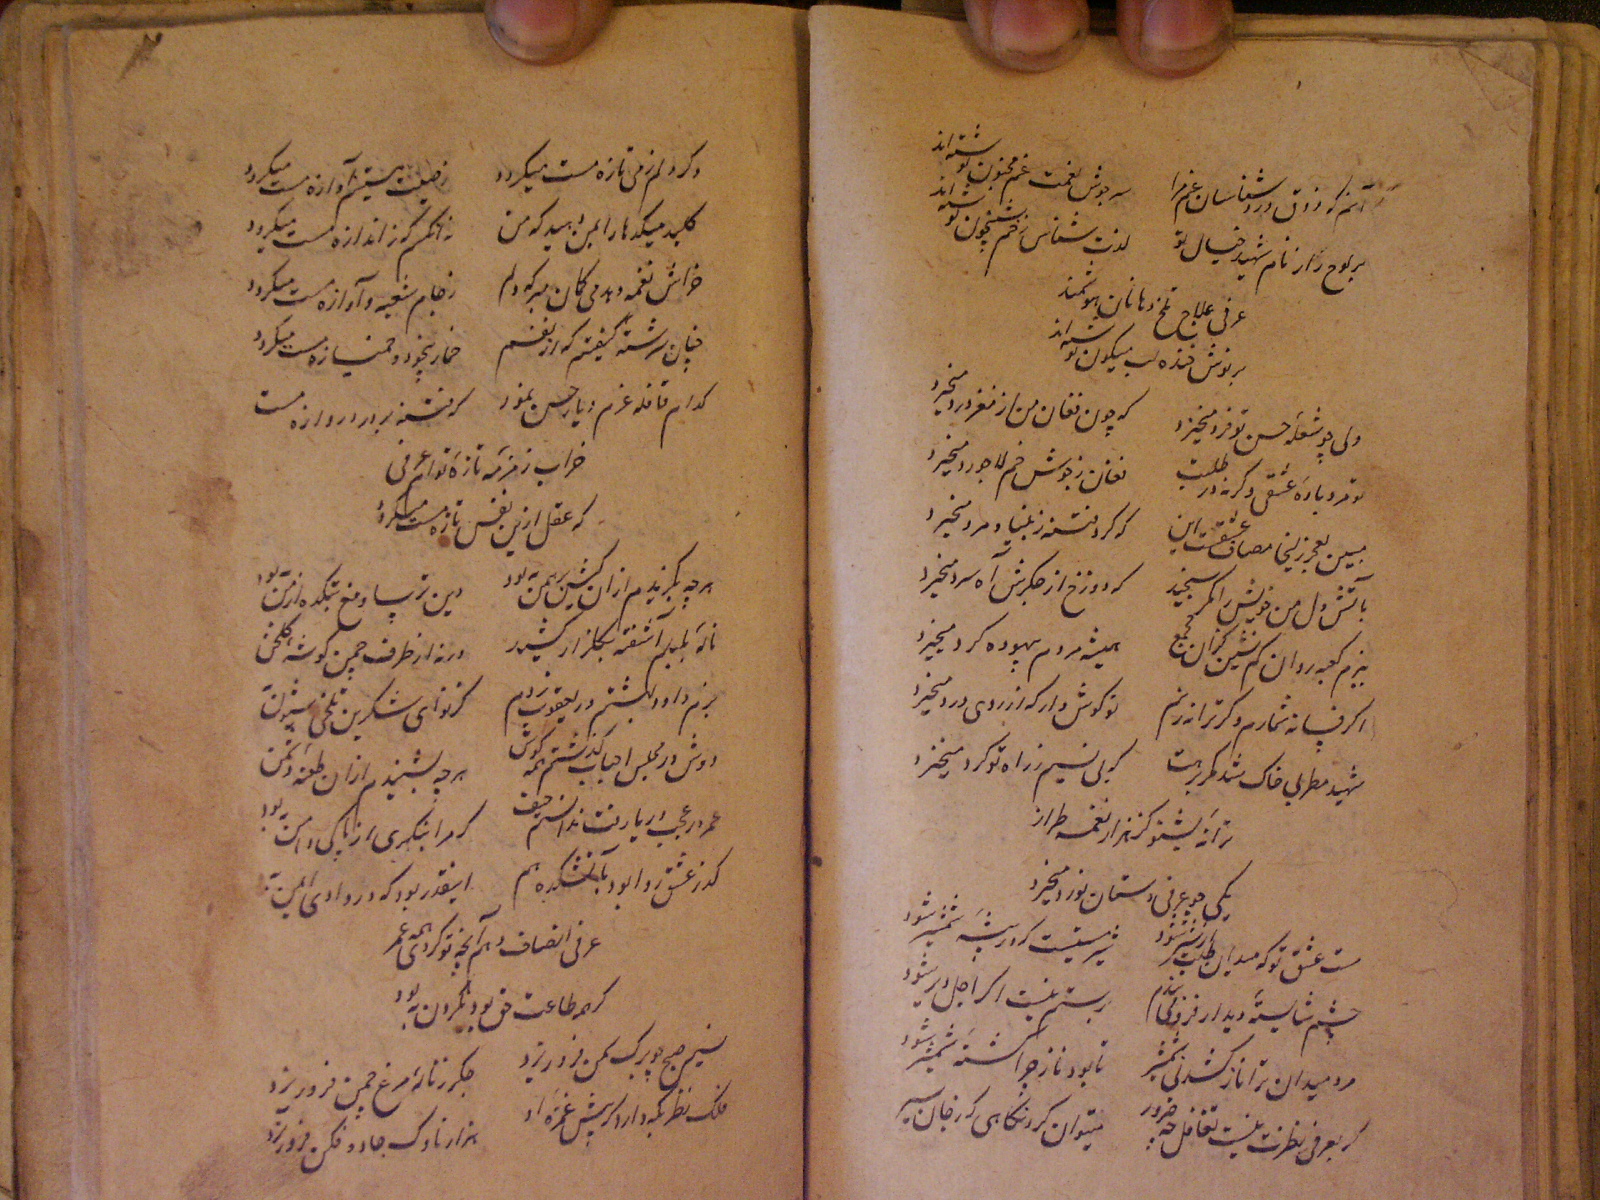 آنم که ذوق درد شناسان غم مرا
سرجوش نعمت غم مجنون نوشته اند
بر لوح زار نام شهید خیال تو
لذت شناس زخم شبیخون نوشته اند
عرفی علاج تلخ دهانان هوشمند
بر نوش خنده لب میگون نوشته اند
ولی چو شعله حسن تو فرد میخیزد
که چون فغان من از مغز درد میخیزد
تو مرد باده عشقی وگرنه در طلبت
فغان ز جوش خم لاجورد میخیزد
ببین بعجز زلیخا مصاف عشقست این
که گرد فتنه ز بنیاد مرد میخیزد
بآتش دل من خویش را مگر سنجید
که دوزخ از جگرش آه سرد میخیزد
ببزم کعبه روان کم نشین کزان مجمع
همیشه مردم بیهوده گرد میخیزد
اگر فسانه شمارم وگر ترانه زنم
تو گوش دار که از روی درد میخیزد
شهید مطربی خاک شد مگر برهت
کزین نسیم ز راه تو گرد میخیزد
ترانه بشنو کز هزار نغمه طراز
یکی چو عرفی دستان نورد میخیزد
مست عشق تو که میدان طلب
شیر مستیست که در بیشه شمشیر شود
چشم شایسته دیدار فزونی
رستم نیست اگر اجل دیر شود
مرد میدان ترا ناز کشد نی شمشیر
تا بود ناز چرا کشته شمشیر شود
گر بعرفی نظرت نیست تغافل چه ضرور
میتوان کرد نگاهی که ز جان سیر
دگر دلم ز می تازه مست میگردد
ز صیت هستیم آوازه مست میگردد
کلید میکدها را بمن دهید که من
نه آنکسم که ز اندازه مست میگردد
خراش نغمه دهد می گمان مبر که دلم
ز جام شعبه و آوازه مست میگردد
چنان سرشته کیفیتم که از نفسم
خمار بیخود و خمیازه مست میگردد
کدام قافله عزم دیار حسن نمود
که فتنه بر در دروازه مست
خراب زمزمه تازه توام عرفی
که عقل ازین نفس تازه مست میگردد
هرچه بگزیدم از آن کیش برهمن به بود
دین ترسا و مغ بتکده از من به بود
ناله بلبلم آشفته بگلزار کشید
ورنه از طرف چمن گوشه گلخن
بزم داود بگشتم در یعقوب زدم
کز نوای شکرین تلخی شیون به
دوش در مجلس احباب گذشتم همه گوش
هرچه بشنیدم از آن طعنه دشمن
عمر در عجب و ریا رفت ندانستم حیف
که مرا تنگری از پاکی دامن به بود
گذر عشق روا بود بآتشکده هم
اینقدر بود که در وادی ایمن به
عرفی انصاف دهم آنچه تو کردی همه عمر
گر همه طاعت حق بود نکردن به بود
نسیم صبح چو برگ سمن فرو ریزد
جگر ز ناله مرغ چمن فرو ریزد
فلک نظر نگه دارد که پیش غمزه او
هزار ناوک جادو فکن فرو ریزد